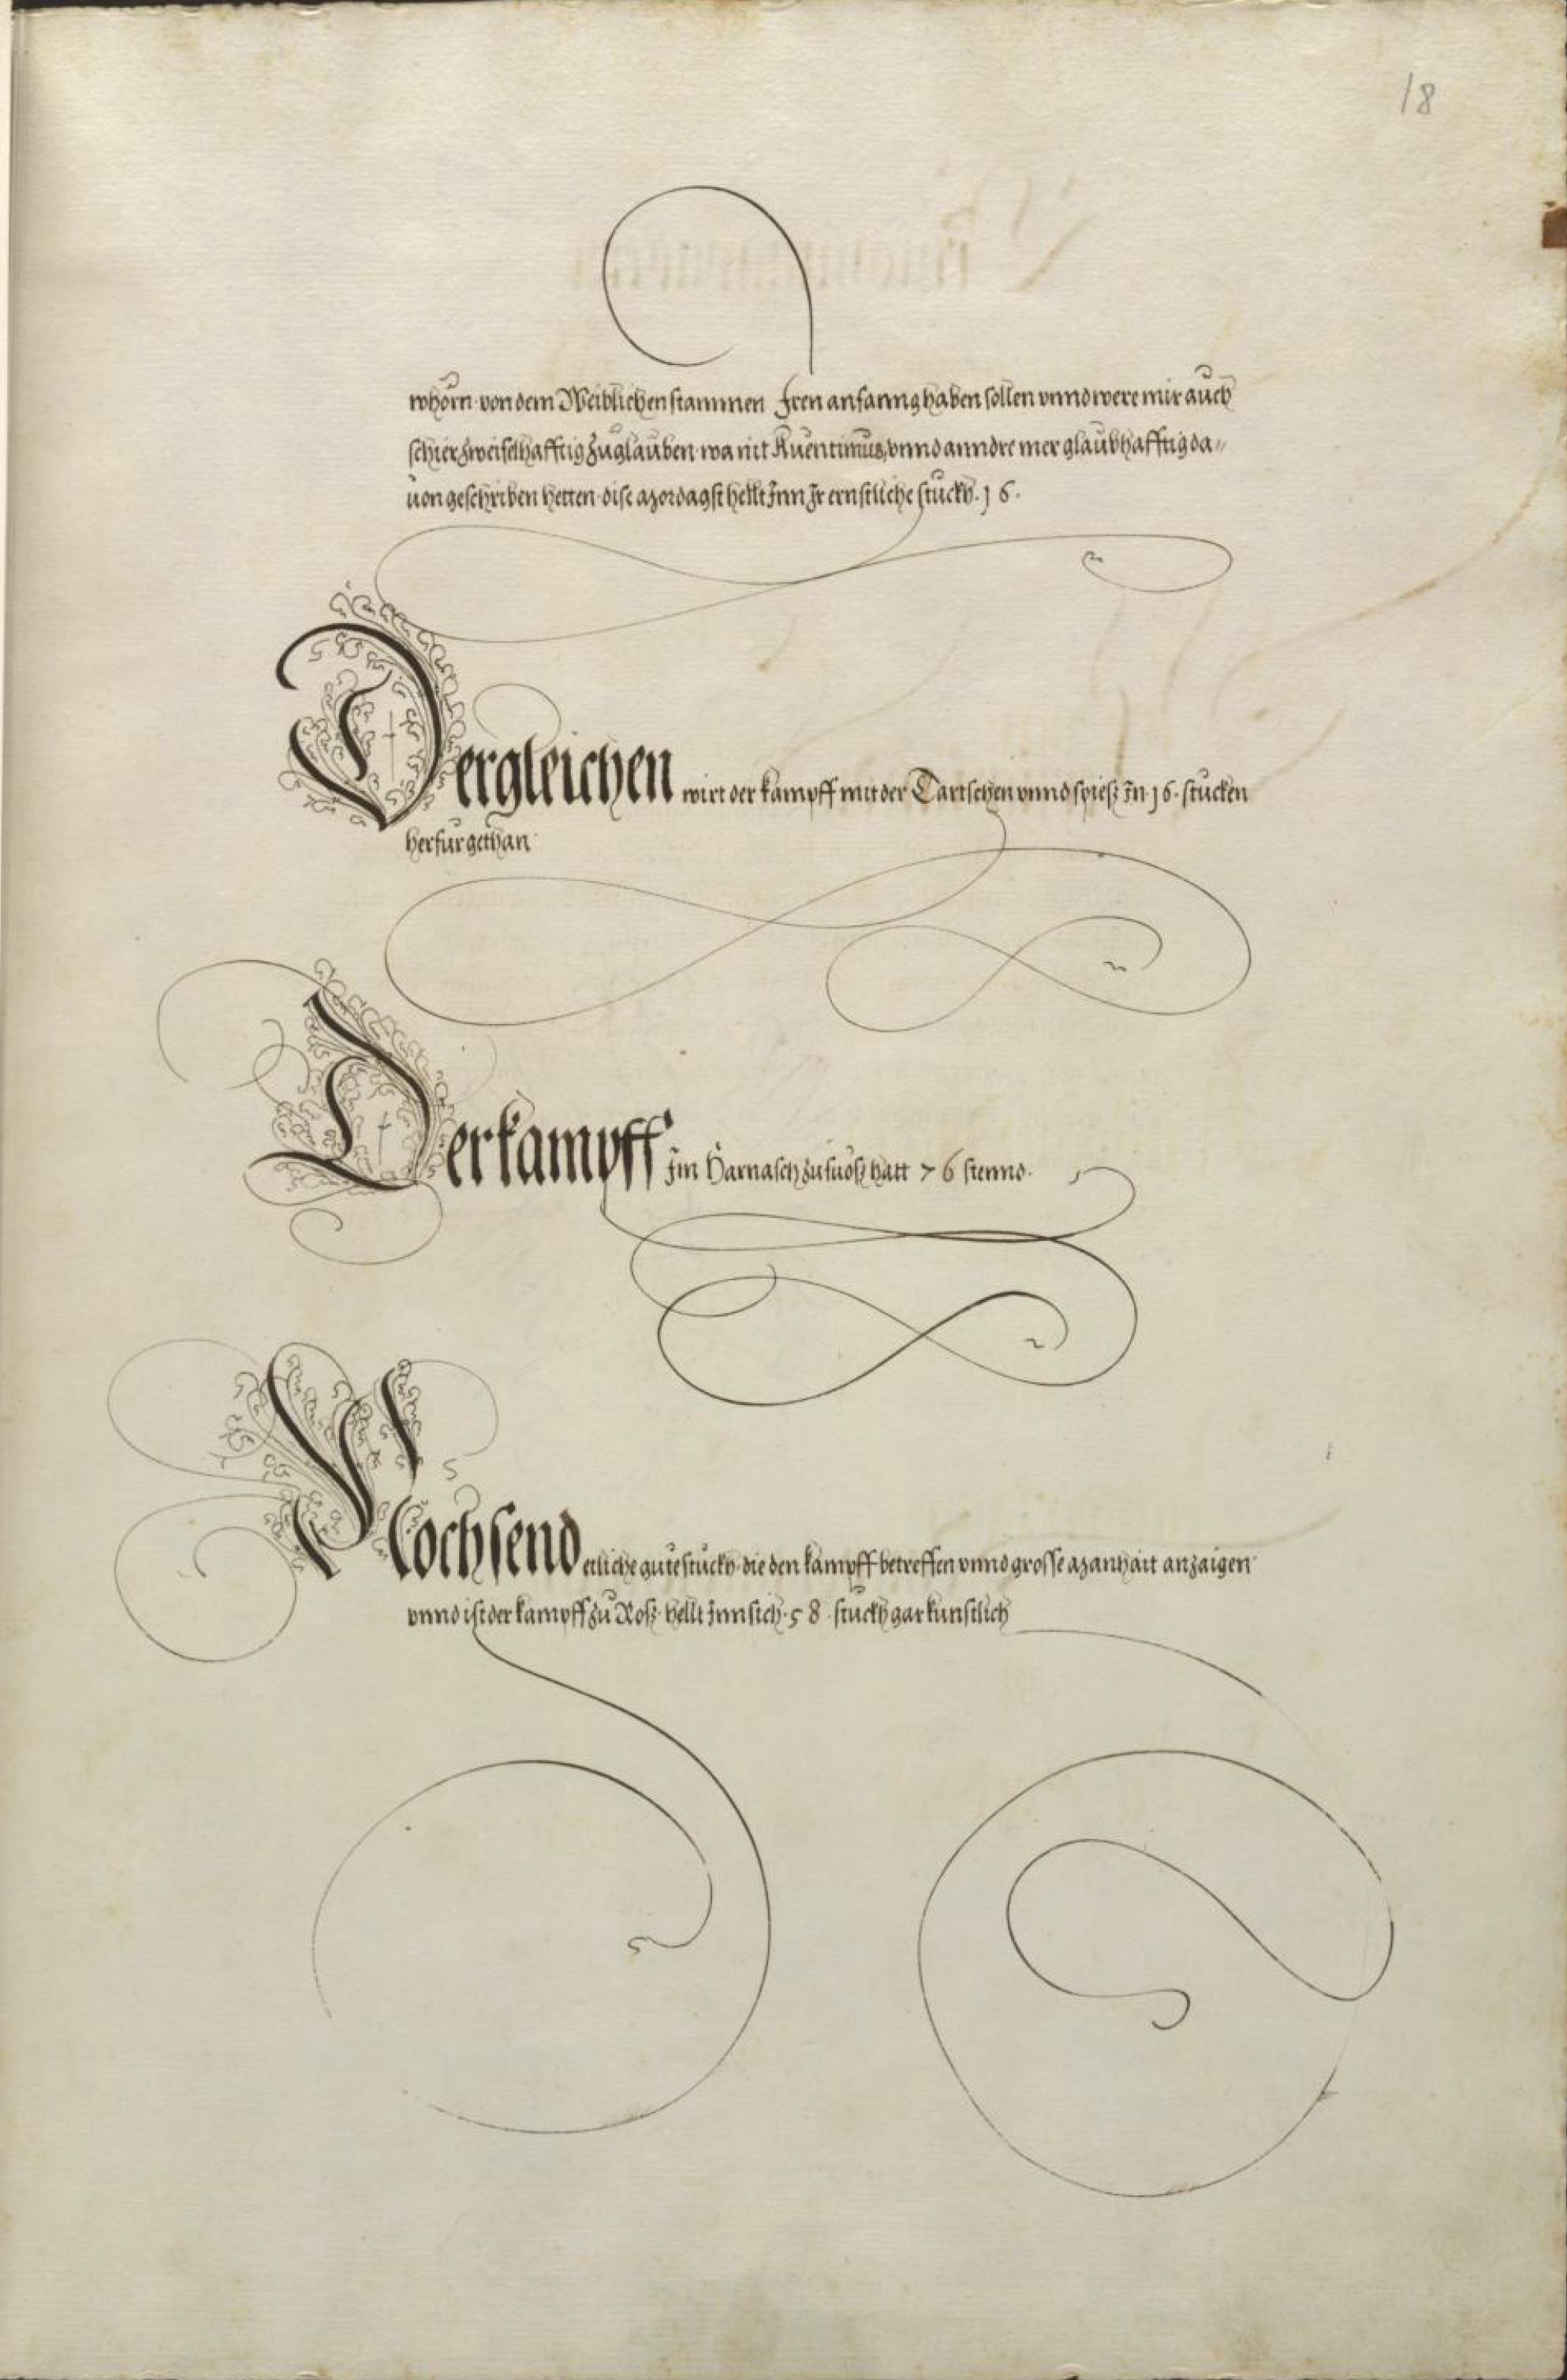 18
whörn von dem Weiblichen stammen Jren anfanng haben sollen vnnd were mir auch
schier zweifelhafftig zuglauben wa nit Auentinus, vnnd anndre mer glaubhafftig da〃
uon geschriben hetten dise mordagst hellt Inn Ir ernstliche stuckh. 16.
Dergleichen wirt der kampff mit der Tartschen vnnd spiesz In 16. stucken
herfur gethan
Der kampff Jm Harnasch zu fuosz hatt 76 stennd.
Noch send etliche gute stuckh die den kampff betreffen vnnd grosse manhait anzaigen
vnnd ist der kampff zu Rosz. hellt Inn sich. 58. stuckh gar kunstlich